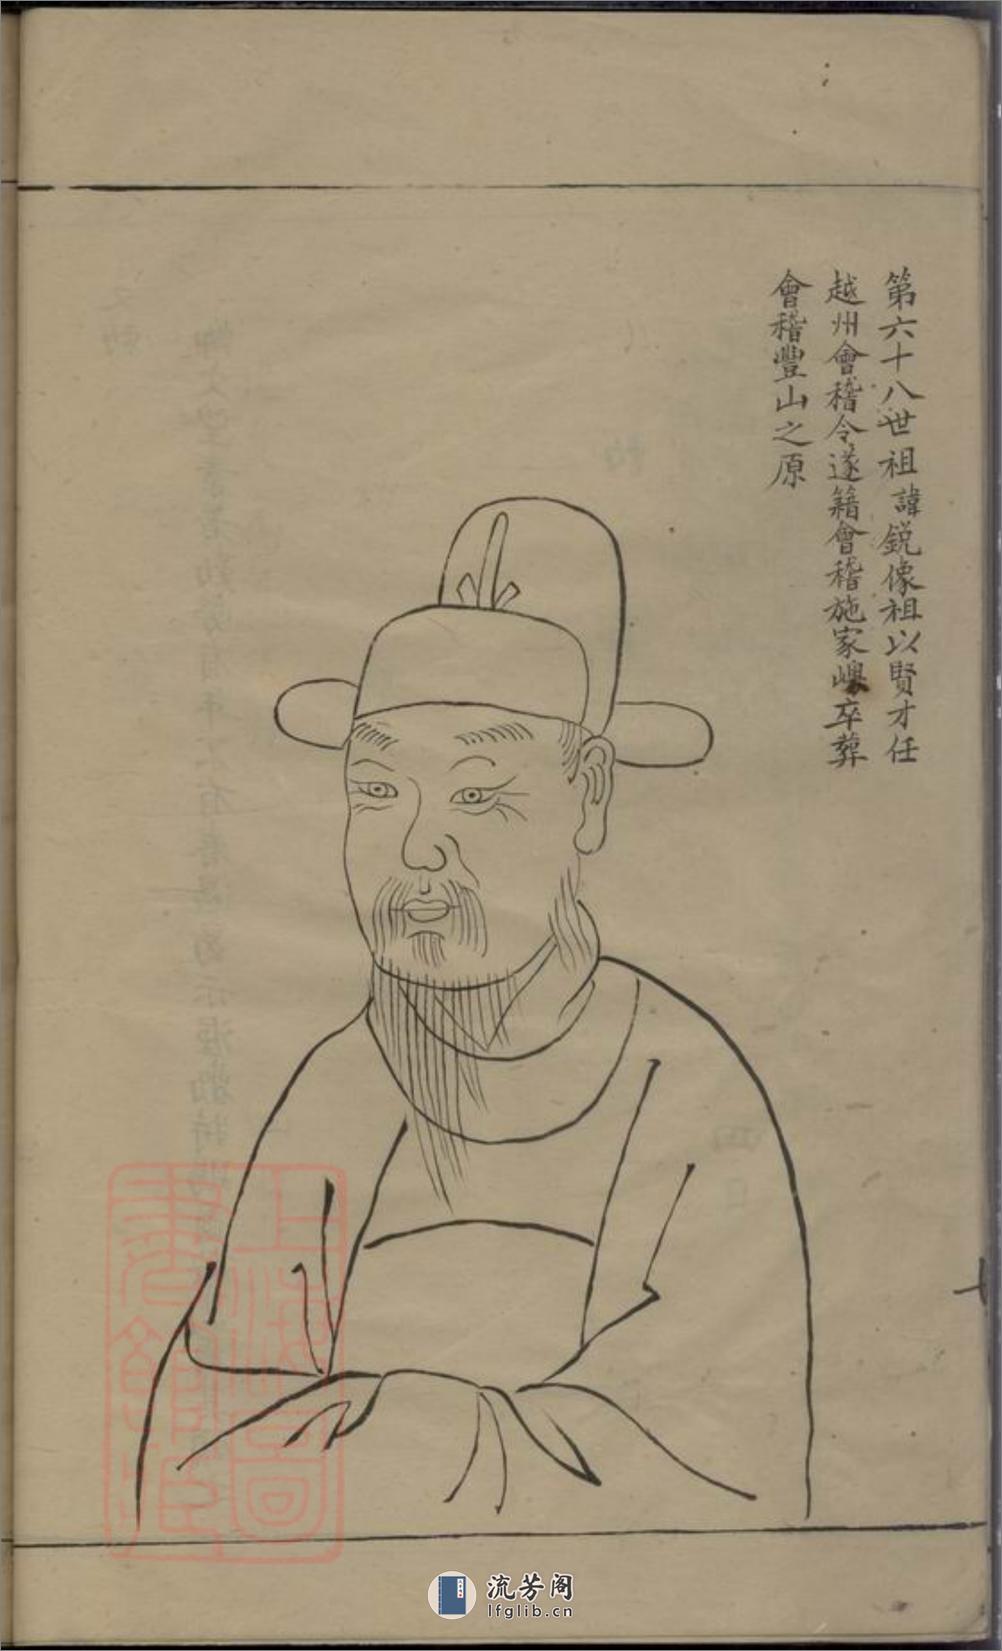 第六十八世祖諱銳像祖以賢才任
越州會稽令遂籍會稽施家嶴卒葬
會稽豐山之原
十
上海圖書館藏
流芳阁
lfglib.cn